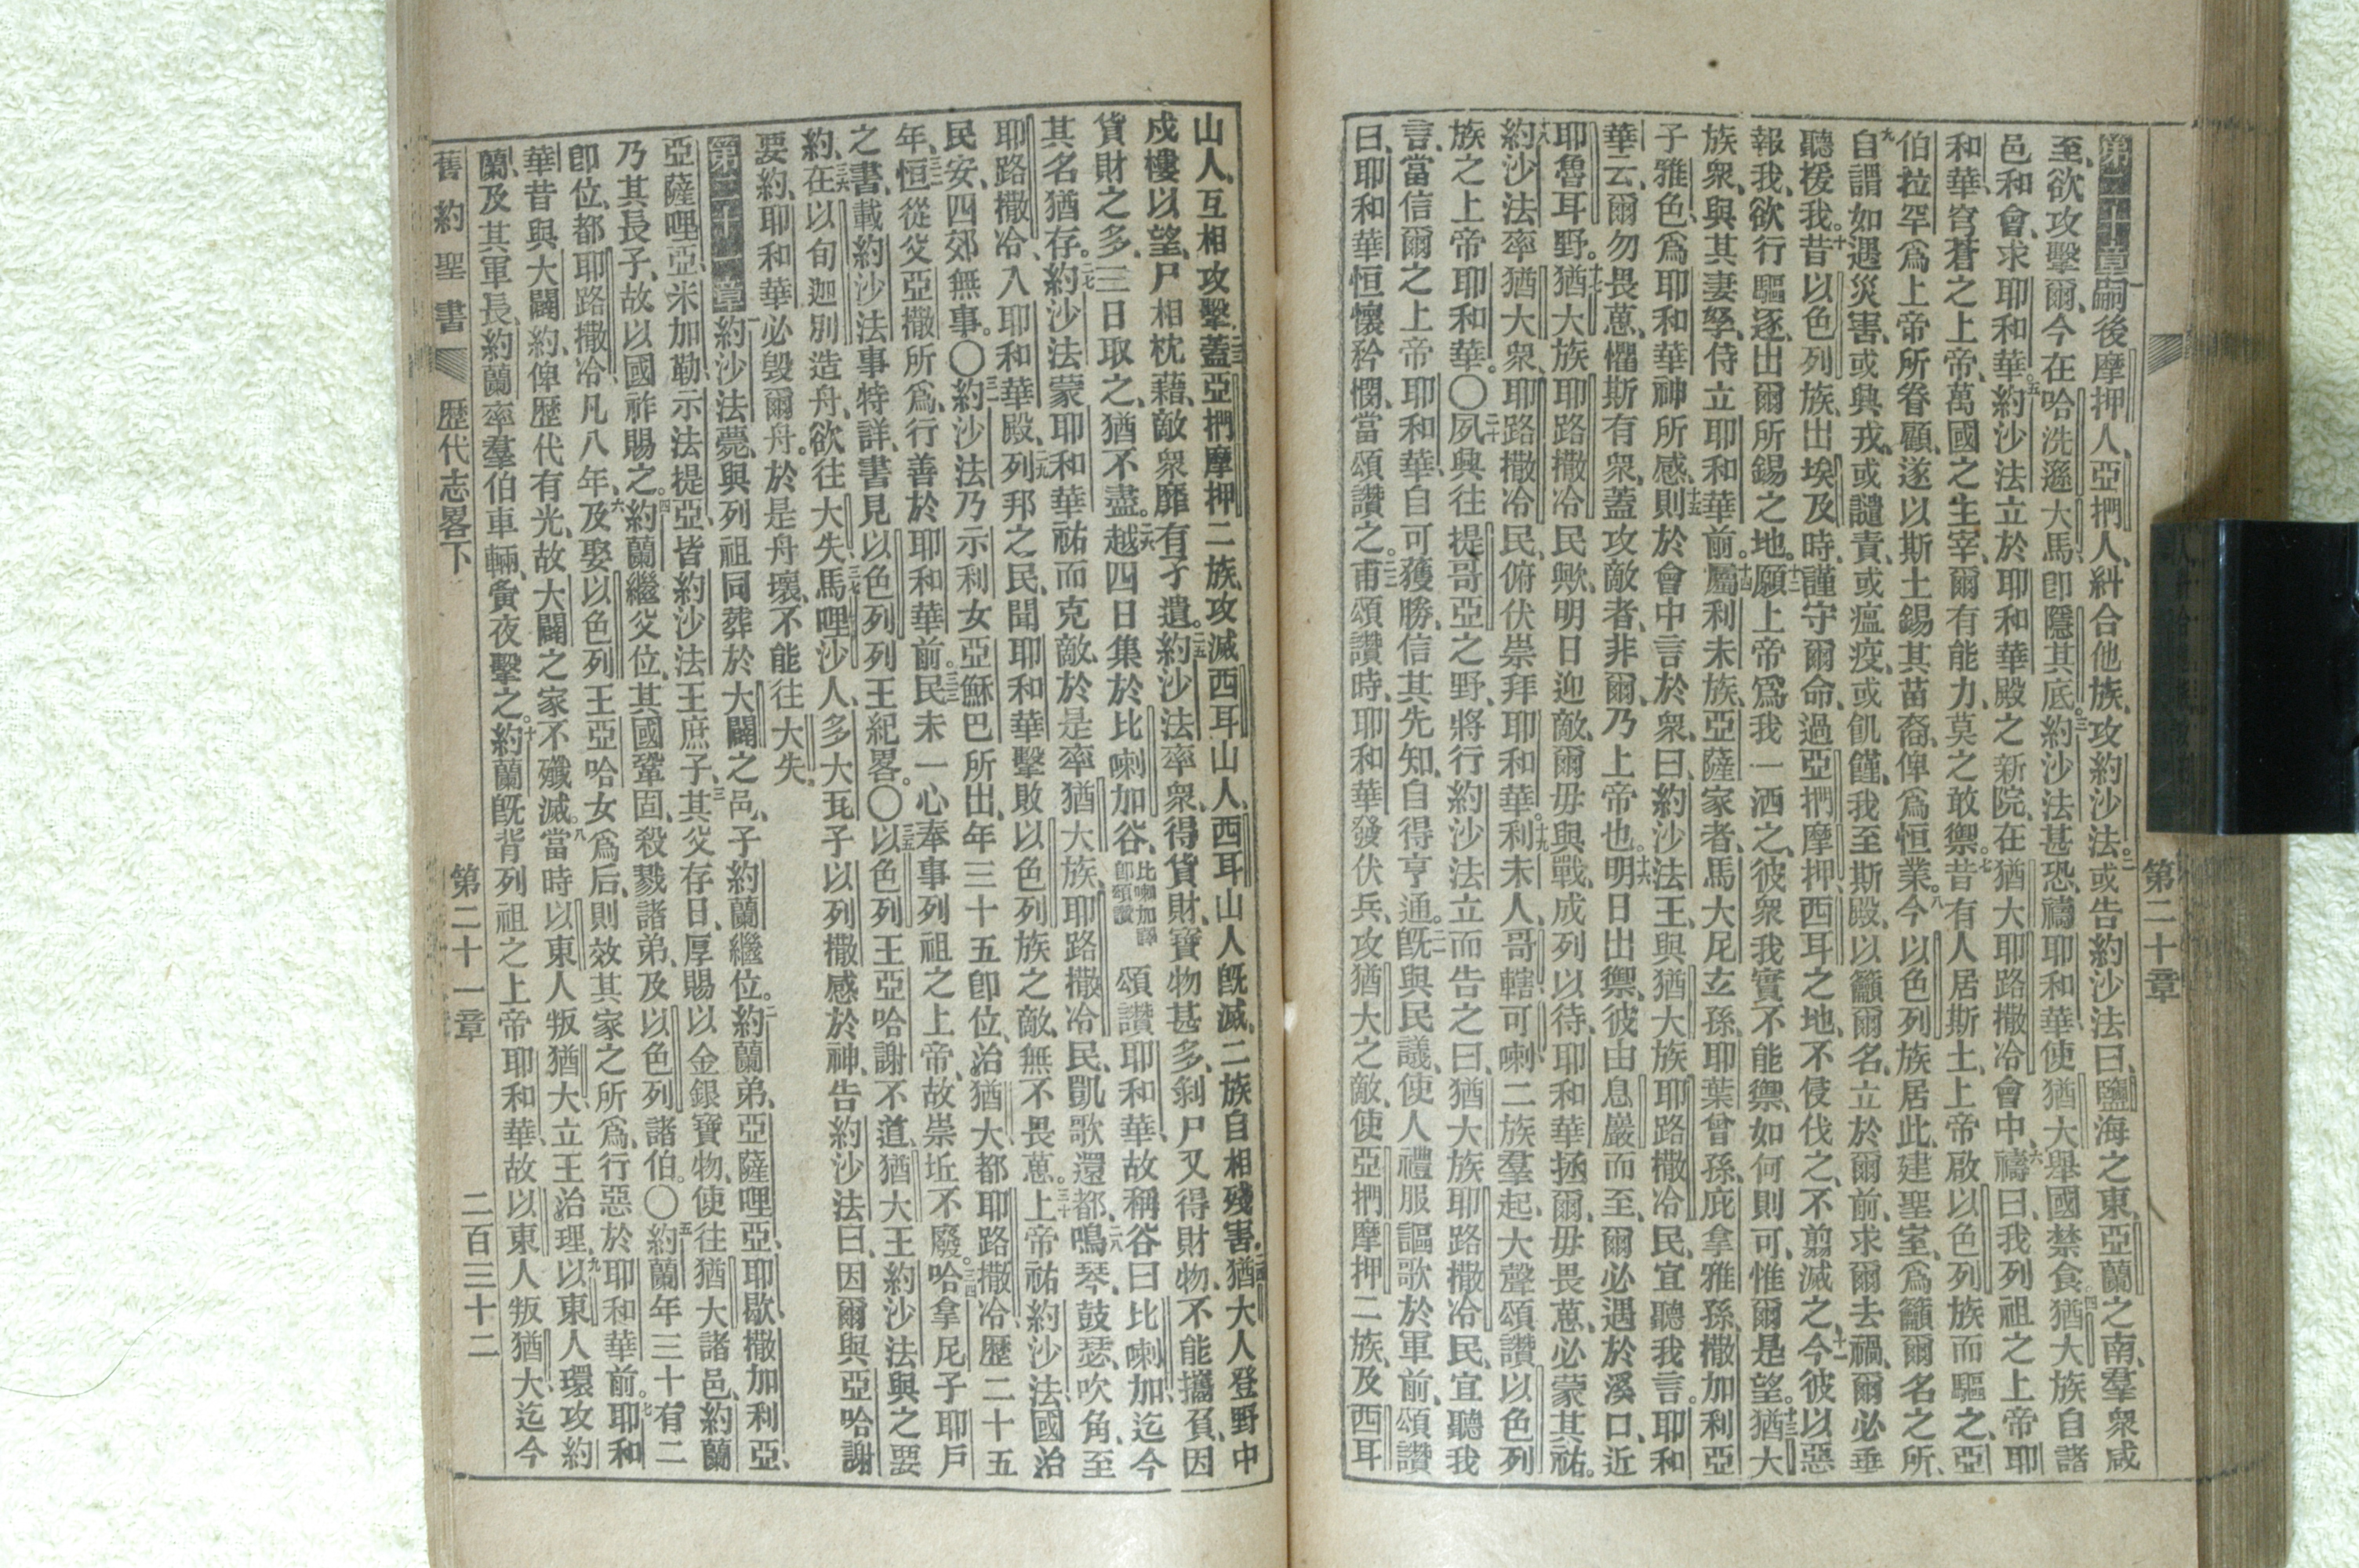 第二十章嗣後摩押人、亞捫人、糾合他族、攻約沙法。二或告約沙法曰、鹽海之東、亞蘭之南、羣衆咸
至、欲攻擊爾、今在哈洗遜大馬、卽隱其底。三約沙法甚恐、禱耶和華、使猶大舉國禁食。四猶大族自諸
邑和會、求耶和華。五約沙法立於耶和華殿之新院、在猶大耶路撒冷會中、六禱曰、我列祖之上帝耶
和華、穹蒼之上帝、萬國之主宰、爾有能力、莫之敢禦。七昔有人居斯土、上帝啟以色列族而驅之、亞
伯拉罕爲上帝所眷顧、遂以斯土錫其苗裔、俾爲恒業。八今以色列族居此、建聖室、爲籲爾名之所、
九自謂如遇災害、或興戎、或譴責、或瘟疫、或飢饉、我至斯殿、以籲爾名、立於爾前、求爾去禍、爾必垂
聽援我。十昔以色列族出埃及時、謹守爾命、過亞捫摩押西耳之地、不侵伐之、不翦滅之、十一今彼以惡
報我、欲行驅逐、出爾所錫之地。十二願上帝爲我一洒之、彼衆我實不能禦、如何則可、惟爾是望。十三猶大
族衆、與其妻孥、侍立耶和華前。十四屬利未族、亞薩家者、馬大尼玄孫、耶葉曾孫、庇拿雅孫、撒加利亞
子雅色、爲耶和華神所感、則於會中、十五言於衆曰、約沙法王、與猶大族耶路撒冷民、宜聽我言。耶和
華云、爾勿畏葸、懼斯有衆、蓋攻敵者、非爾、乃上帝也。十六明日出禦、彼由息巖而至、爾必遇於溪口、近
耶魯耳野。十七猶大族耶路撒冷民歟、明日迎敵、爾毋與戰、成列以待、耶和華拯爾、毋畏葸、必蒙其祐。
十八約沙法率猶大衆、耶路撒冷民、俯伏崇拜耶和華。十九利未人、哥轄、可喇二族羣起、大聲頌讚以色列
族之上帝耶和華。〇二十夙興往提哥亞之野、將行、約沙法立而告之曰、猶大族耶路撒冷民、宜聽我
言、當信爾之上帝耶和華、自可獲勝、信其先知、自得亨通。二一旣與民議、使人禮服謳歌於軍前、頌讚
曰、耶和華恒懷矜憫、當頌讚之。二二甫頌讚時、耶和華發伏兵、攻猶大之敵、使亞捫摩押二族、及西耳
第二十章
山人、互相攻擊、二三蓋亞捫摩押二族、攻滅西耳山人、西耳山人旣滅、二族自相殘害。二四猶大人登野中
戍樓以望、尸相枕藉、敵衆靡有孑遺。二五約沙法率衆、得貨財、寶物甚多、剝尸又得財物、不能攜負、因
貨財之多、三日取之、猶不盡。二六越四日集於比喇加谷、比喇加譯卽頌讚頌讚耶和華、故稱谷曰比喇加、迄今
其名猶存。二七約沙法蒙耶和華祐而克敵、於是率猶大族、耶路撒冷民、凱歌還都、二八鳴琴、鼓瑟、吹角、至
耶路撒冷、入耶和華殿、二九列邦之民、聞耶和華擊敗以色列族之敵、無不畏葸。三十上帝祐約沙法、國治
民安、四郊無事。〇三一約沙法乃示利女亞穌巴所出、年三十五卽位、治猶大、都耶路撒冷、歷二十五
年、三二恒從父亞撒所爲、行善於耶和華前。三三民未一心奉事列祖之上帝、故崇坵不廢。三四哈拿尼子耶戶
之書、載約沙法事特詳、書見以色列列王紀畧。〇三五以色列王亞哈謝不道、猶大王約沙法與之要
約、三六在以旬迦別造舟、欲往大失、三七馬哩沙人多大瓦子以列撒感於神、告約沙法曰、因爾與亞哈謝
要約、耶和華必毀爾舟。於是舟壞、不能往大失、
第二十一章一約沙法薨、與列祖同葬於大闢之邑、子約蘭繼位。二約蘭弟、亞薩哩亞、耶歇、撒加利亞、
亞薩哩亞、米加勒、示法提亞、皆約沙法王庶子、三其父存日、厚賜以金銀寶物、使往猶大諸邑、約蘭
乃其長子、故以國祚賜之。四約蘭繼父位、其國鞏固、殺戮諸弟、及以色列諸伯。〇五約蘭年三十有二
卽位、都耶路撒冷、凡八年、六及娶以色列王亞哈女爲后、則效其家之所爲、行惡於耶和華前。七耶和
華昔與大闢約、俾歷代有光、故大闢之家不殲滅。八當時以東人叛猶大、立王治理、九以東人環攻約
蘭、及其軍長、約蘭率羣伯車輛、夤夜擊之。十約蘭旣背列祖之上帝耶和華、故以東人叛猶大、迄今
舊約聖書 歷代志畧下 第二十一章 二百三十二